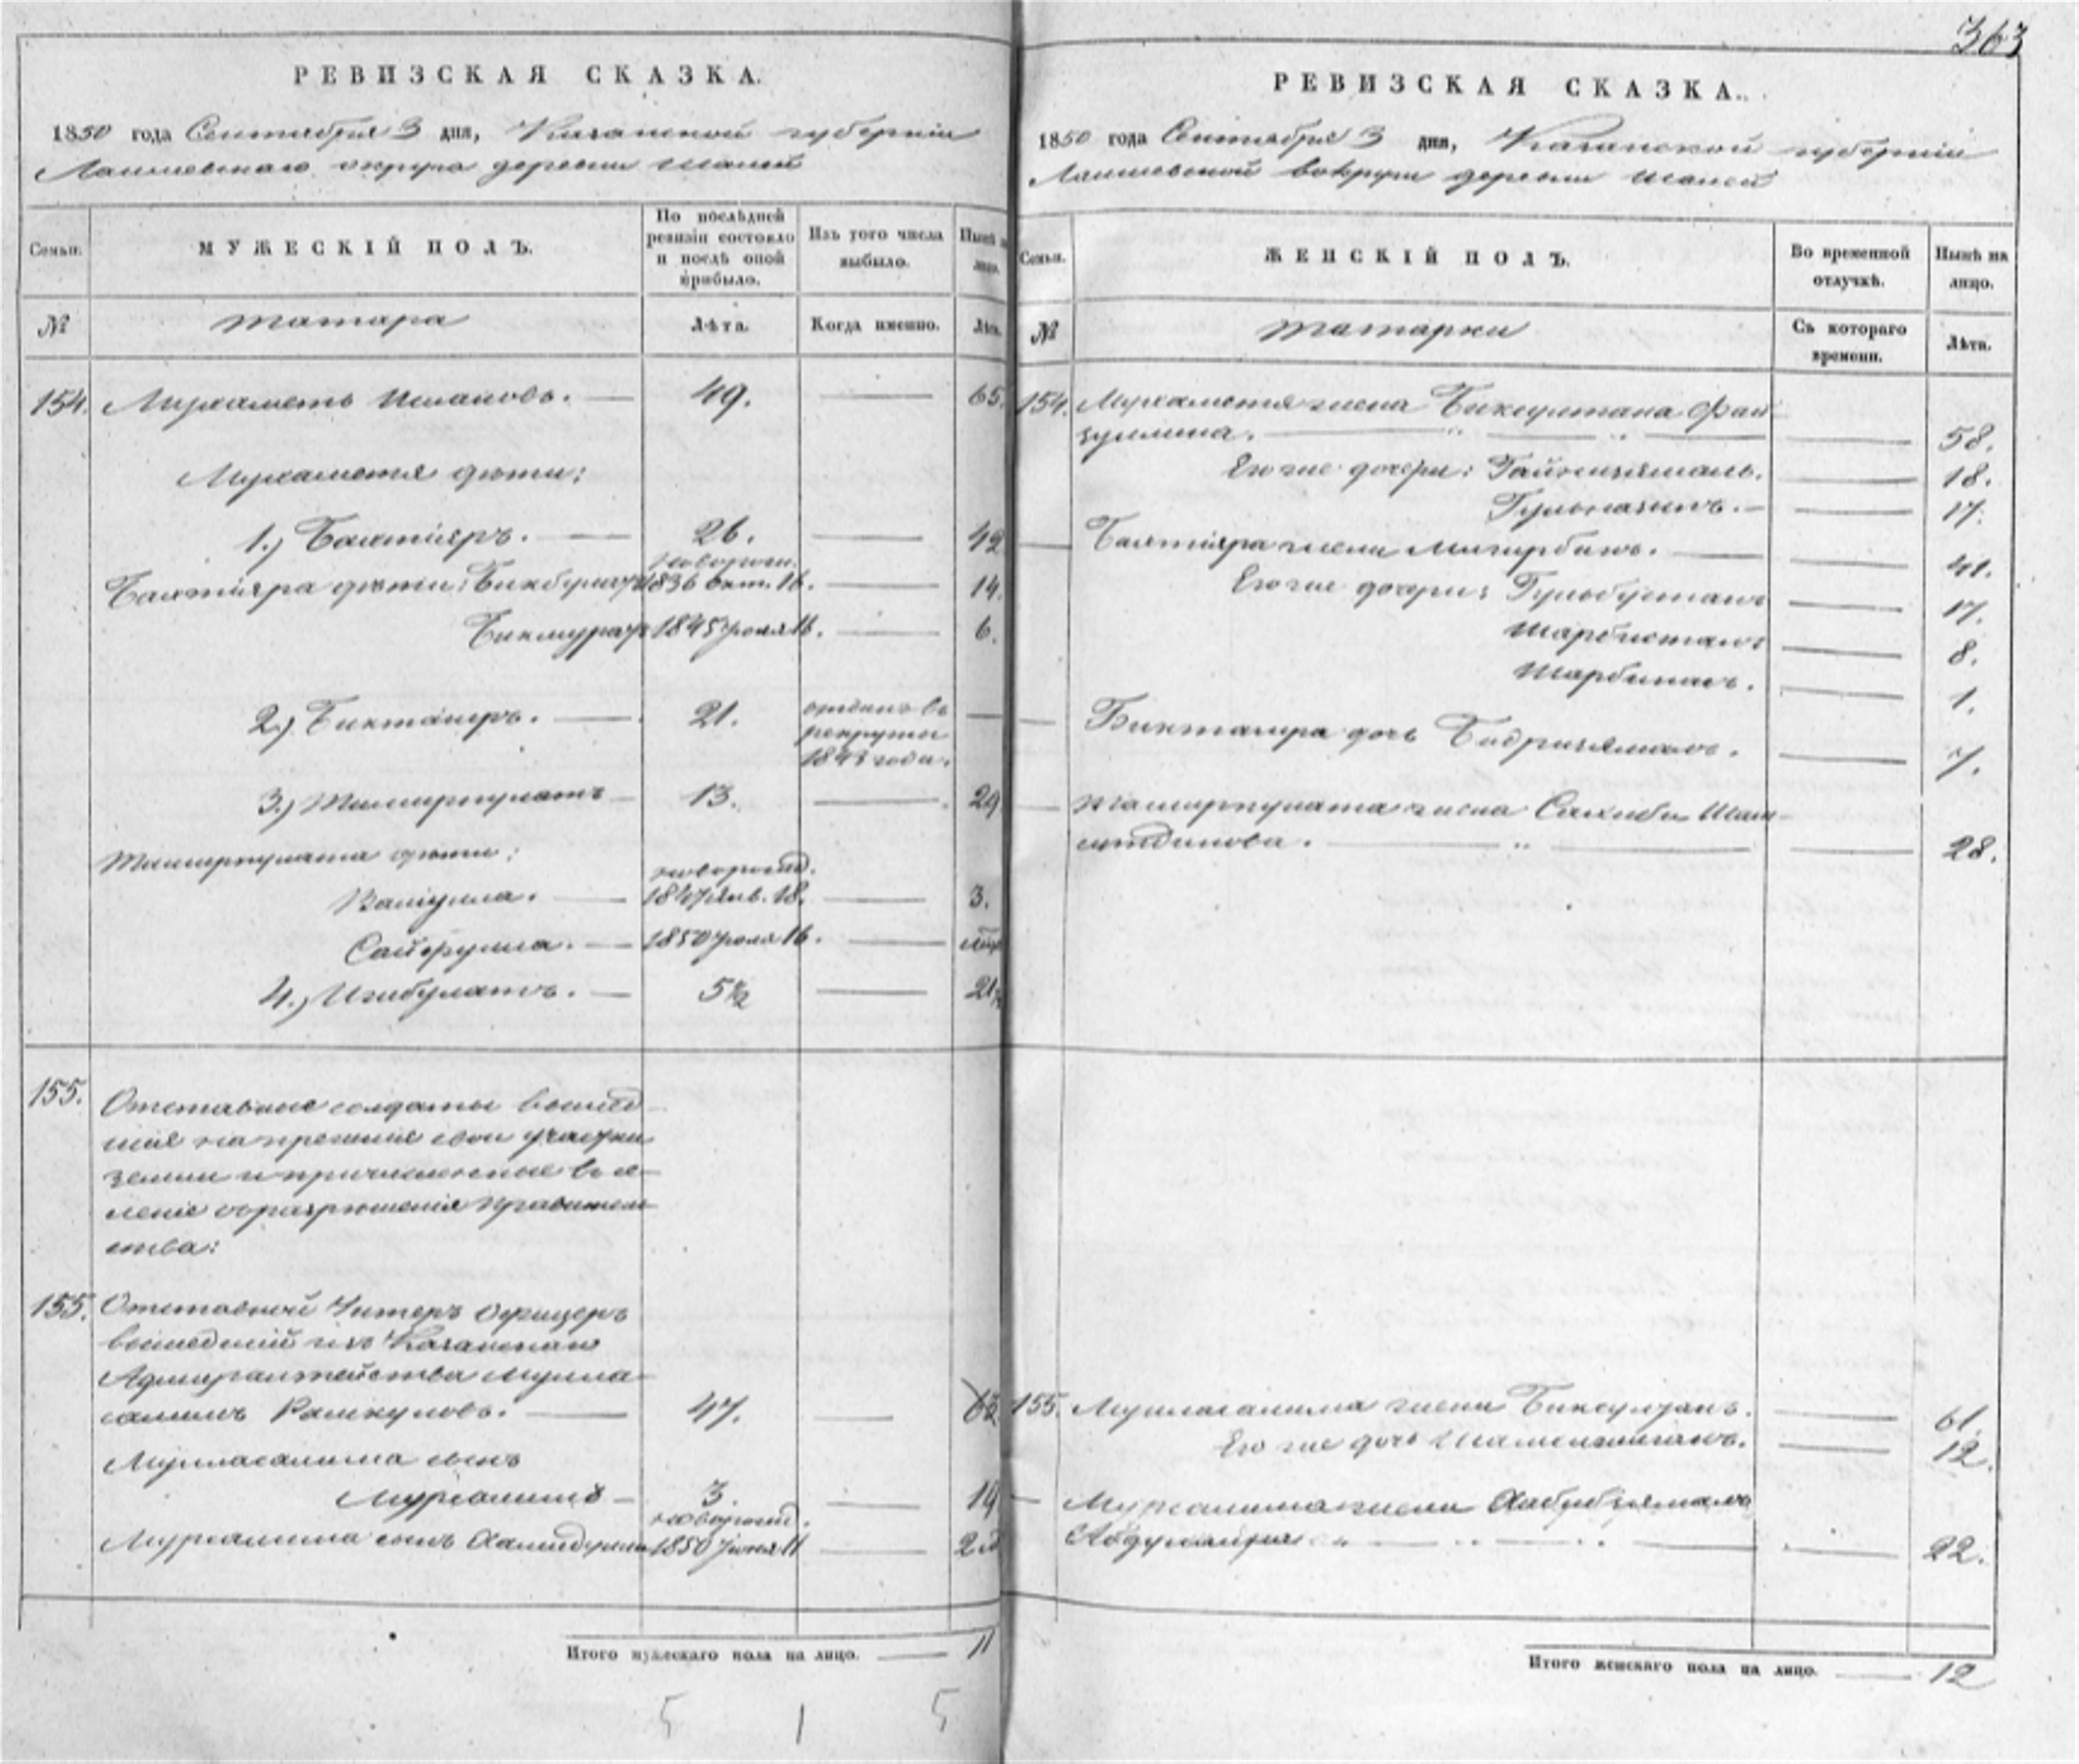 363
РЕВИЗСКАЯ СКАЗКА.
1850 года Сентября 3 дня, Казанской губернiи
Лаишевскаго округа деревни Шалей
Семьи. МУЖЕСКIЙ ПОЛЪ. По послѣдней ревизiи состояло и послѣ оной прибыло. Изъ того числа выбыло. Нынѣ на лицо.
№ татара Лѣта. Когда именно. Лѣта.
154. Мухаметъ Исмаиловъ. — 49. — 65.
Мухаметя дѣти:
1.) Бахтіяръ. — 26. — 42
новорожд.
Бахтіяра дѣти: Бикбулатъ 1836 Окт. 16. — 14.
Бикмуратъ 1845 Іюля 16. — 6.
2.) Биктагиръ. — 21. отданъ въ —
рекруты
1843 года.
3.) Тимиръпулатъ — 13. — 29
Тимиръпулата дѣти:
новорожд.
Валіулла. — 1847 Янв. 18. — 3.
Сайфулла. — 1850 Іюля 16. —
4.) Ишбулатъ. — 5½ — 21½
155. Отставные солдаты вышед-
шiе на прежнiе свои участки
земли и причисленные въ се-
ленiе съ разрѣшенiя Правитель-
ства:
155. Отставной Унтеръ Офицеръ
вышедшiй изъ Казанскаго
Адмиралтейства Мулла-
салимъ Рамкуловъ. — 47. — 63
Мулласалима сынъ
Мурсалимъ — 3. — 19
новорожд.
Мурсалима сынъ Хамидулла 1850 Іюня 11 — 2 м
Итого мужескаго пола на лицо. — 11
5 1 5
РЕВИЗСКАЯ СКАЗКА.
1850 года Сентября 3 дня, Казанской губернiи
Лаишевской вокруги деревни Шалей
Семьи. ЖЕНСКIЙ ПОЛЪ. Во временной отлучкѣ. Нынѣ на лицо.
№ татарки Съ котораго времени. Лѣта.
154. Мухаметя жена Биксултана Фай-
зуллина. — " — " — — 58.
Его же дочери: Гайнизямалъ. — 18.
Гульназынъ. — — 17.
— Бахтіяра жена Мигирбанъ. — — 41.
Его же дочери: Гульбустанъ — 17.
Шарбистанъ — 8.
Шарбинаъ. — 1.
— Биктагира дочь Бадризямалъ. — 7.
— Тимиръпулата жена Сахиба Шам-
ситдинова. — " — — 28.
155. Мулласалима жена Биксулзанъ. — 61.
Его же дочь — 12.
— Мурсалима жена Хабибзямалъ
— 22.
Итого женскаго пола на лицо. — 12